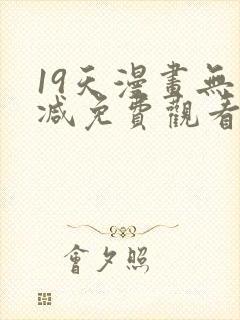 19天漫畫無
减免費觀看
會夕照